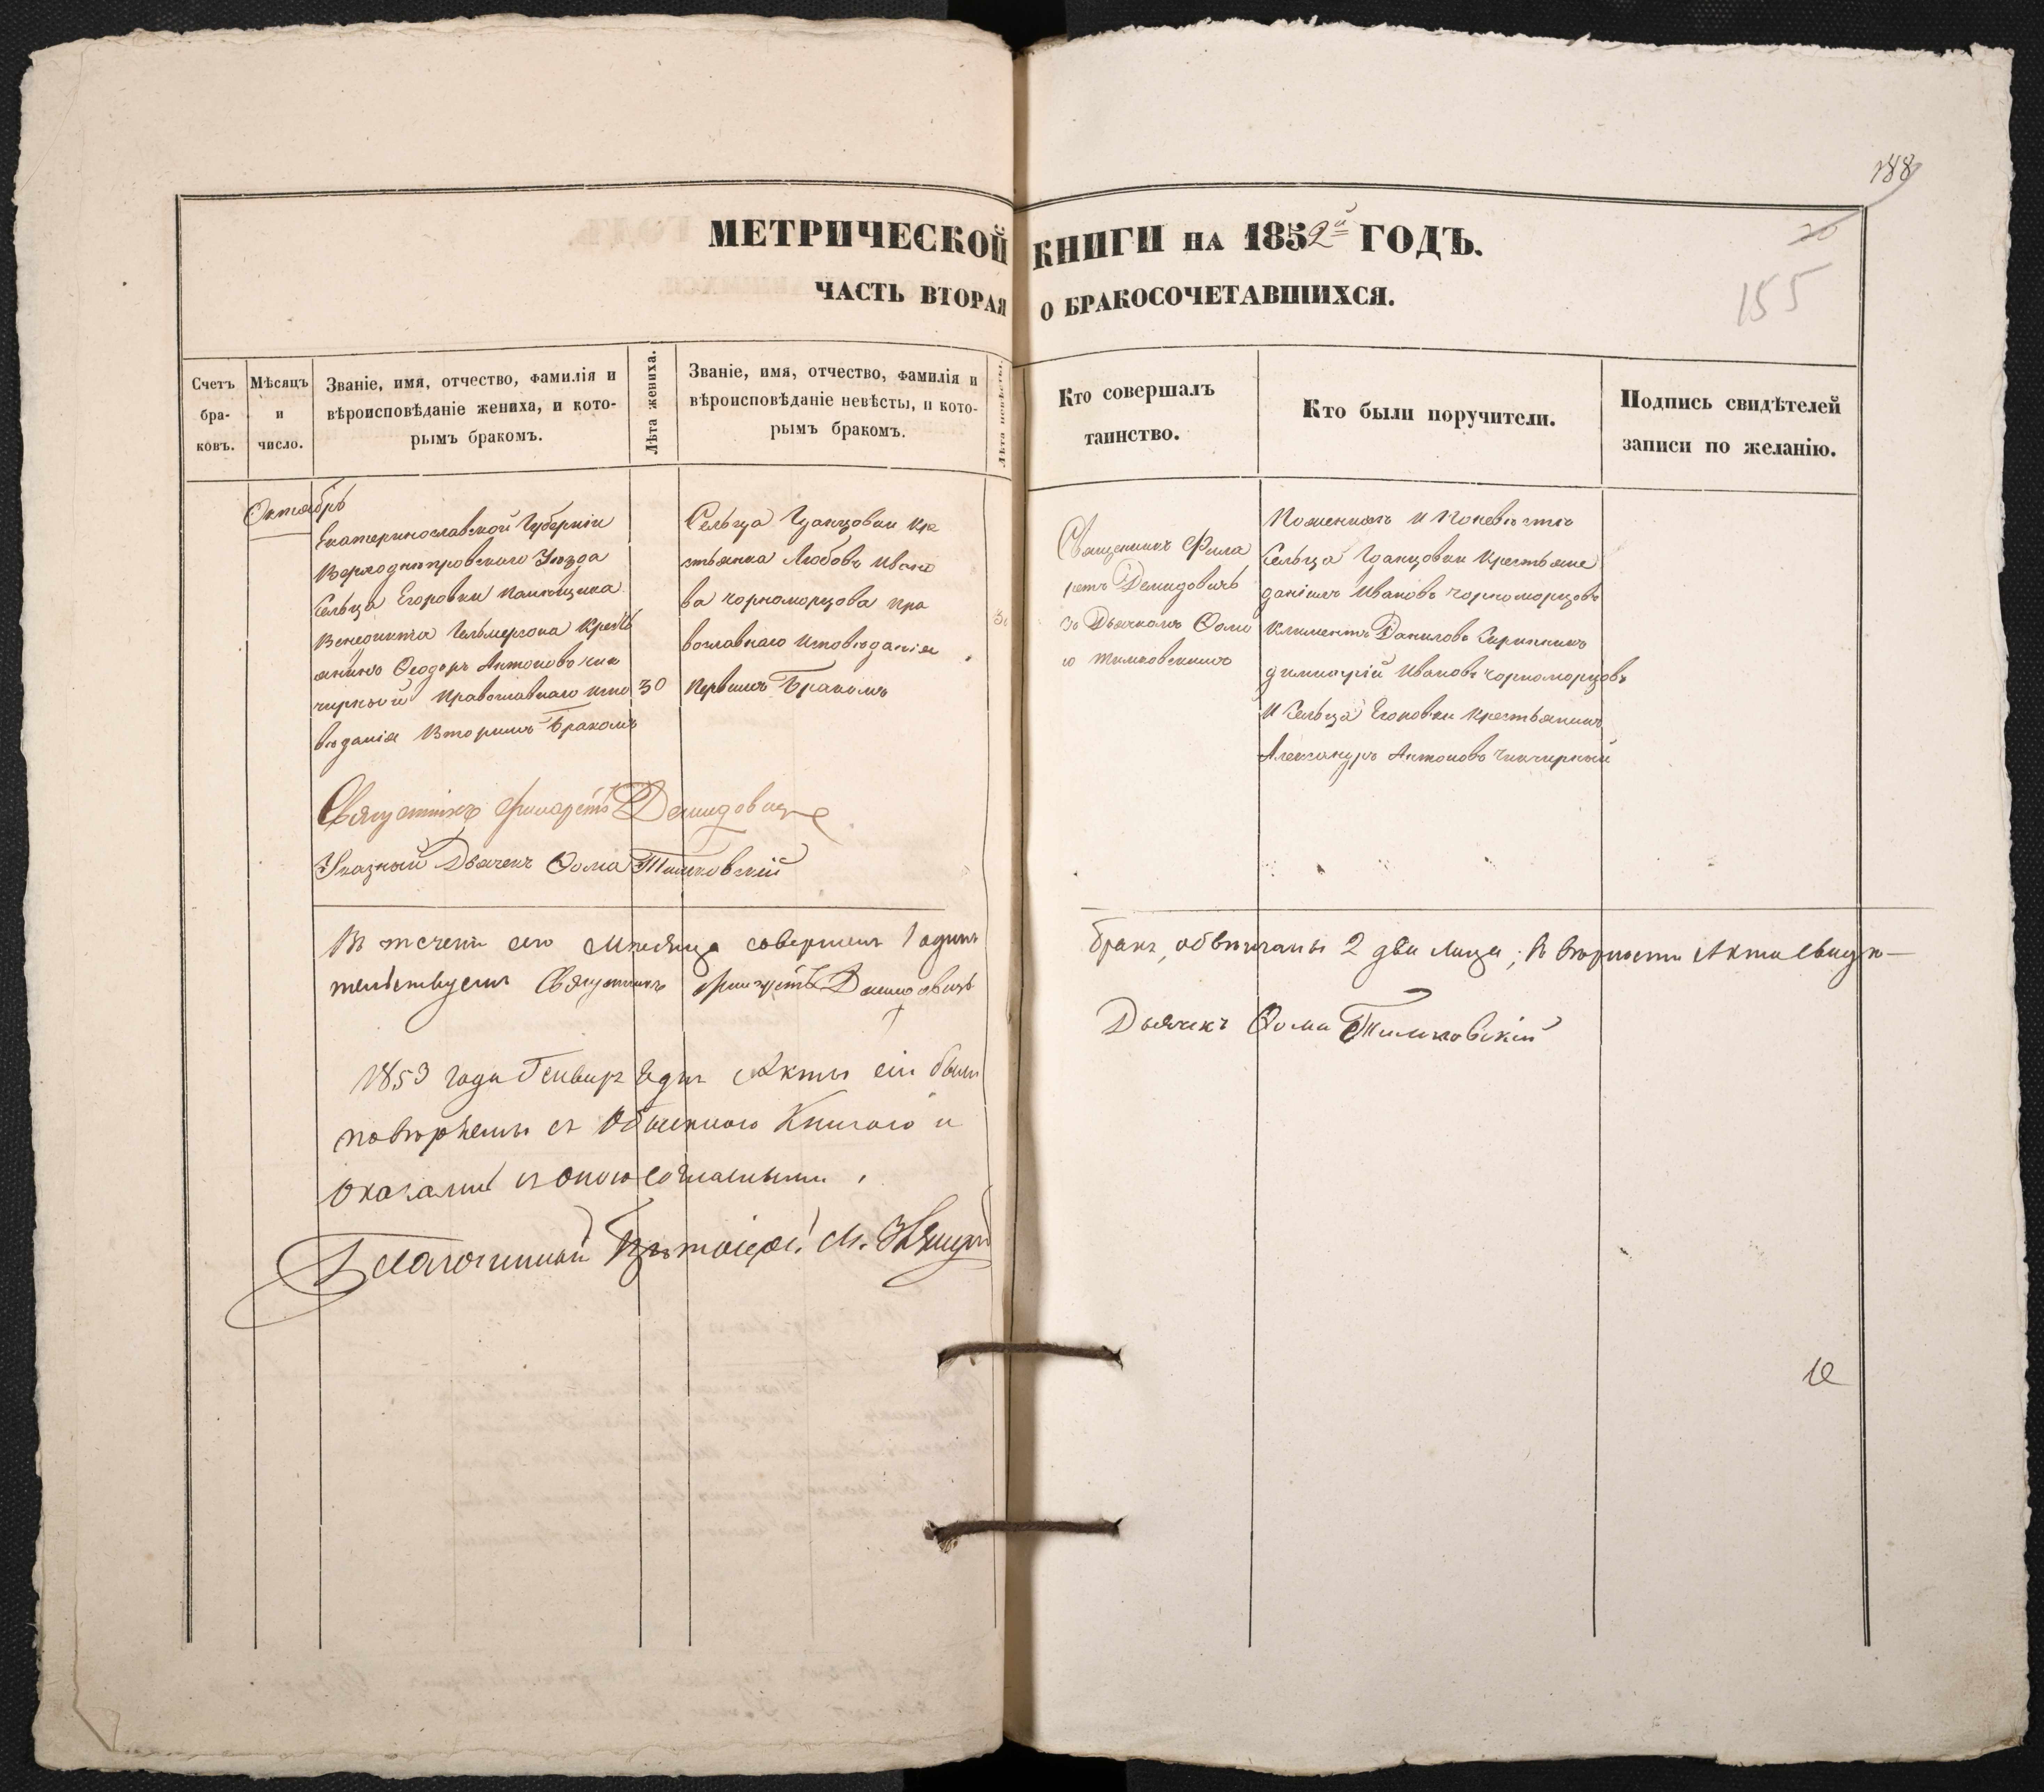 188
МЕТРИЧЕСКОЙ КНИГИ НА 1852й ГОДЪ.
20
155
ЧАСТЬ ВТОРАЯ О БРАКОСОЧЕТАВШИХСЯ.
Счетъ бра-ковъ.
Мѣсяцъ и число.
Званіе, имя, отчество, фамилія и
вѣроисповѣданіе жениха, и кото-
рымъ бракомъ.
Лѣта жениха.
Званіе, имя, отчество, фамилія и
вѣроисповѣданіе невѣсты, и кото-
рымъ бракомъ.
Лѣта невѣсты.
Кто совершалъ
таинство.
Кто были поручители.
Подпись свидѣтелей
записи по желанію.
Октябрь
Екатеринославской Губерніи
Верходнѣпровскаго Уѣзда
Сельца Егоровки
Венедикта Гельмерсона Кресть
янинъ Ѳеодоръ Антоновъ Чик
чирный Православнаго испо
вѣданія Вторымъ Бракомъ
30
Сельца Гданцовки Кре
стьянка Любовь Ивано
ва Чорноморцова Пра
вославнаго исповѣданія
Первымъ Бракомъ
Священникъ Фила
ретъ Демидовичъ
съ Дьячкомъ Ѳомо
ю Тимковскимъ
По женихѣ и По невѣстѣ
Сельца Гданцовки Крестьяне
Даніилъ Ивановъ Чорноморцовъ
Климентъ Даниловъ
Димитрій Ивановъ Чорноморцовъ
и Сельца Егоровки Крестьянинъ
Александръ Антоновъ Чикчирный
Священникъ Филаретъ Демидовичъ
Указный Дьячекъ Ѳома Тимковскій
В течении сего Месяца совершенъ 1 одинъ
бракъ, обвѣнчаны 2 два лица; в вѣрности Акта свидѣ-
тельствуемъ Священникъ Филаретъ Демидовичъ
Дьячекъ Ѳома Тимковскій
1853 года Генвар дня Акты сіи были
повѣрены съ Обыскною Книгою и
оказались съ оною согласными.
Благочинный М.